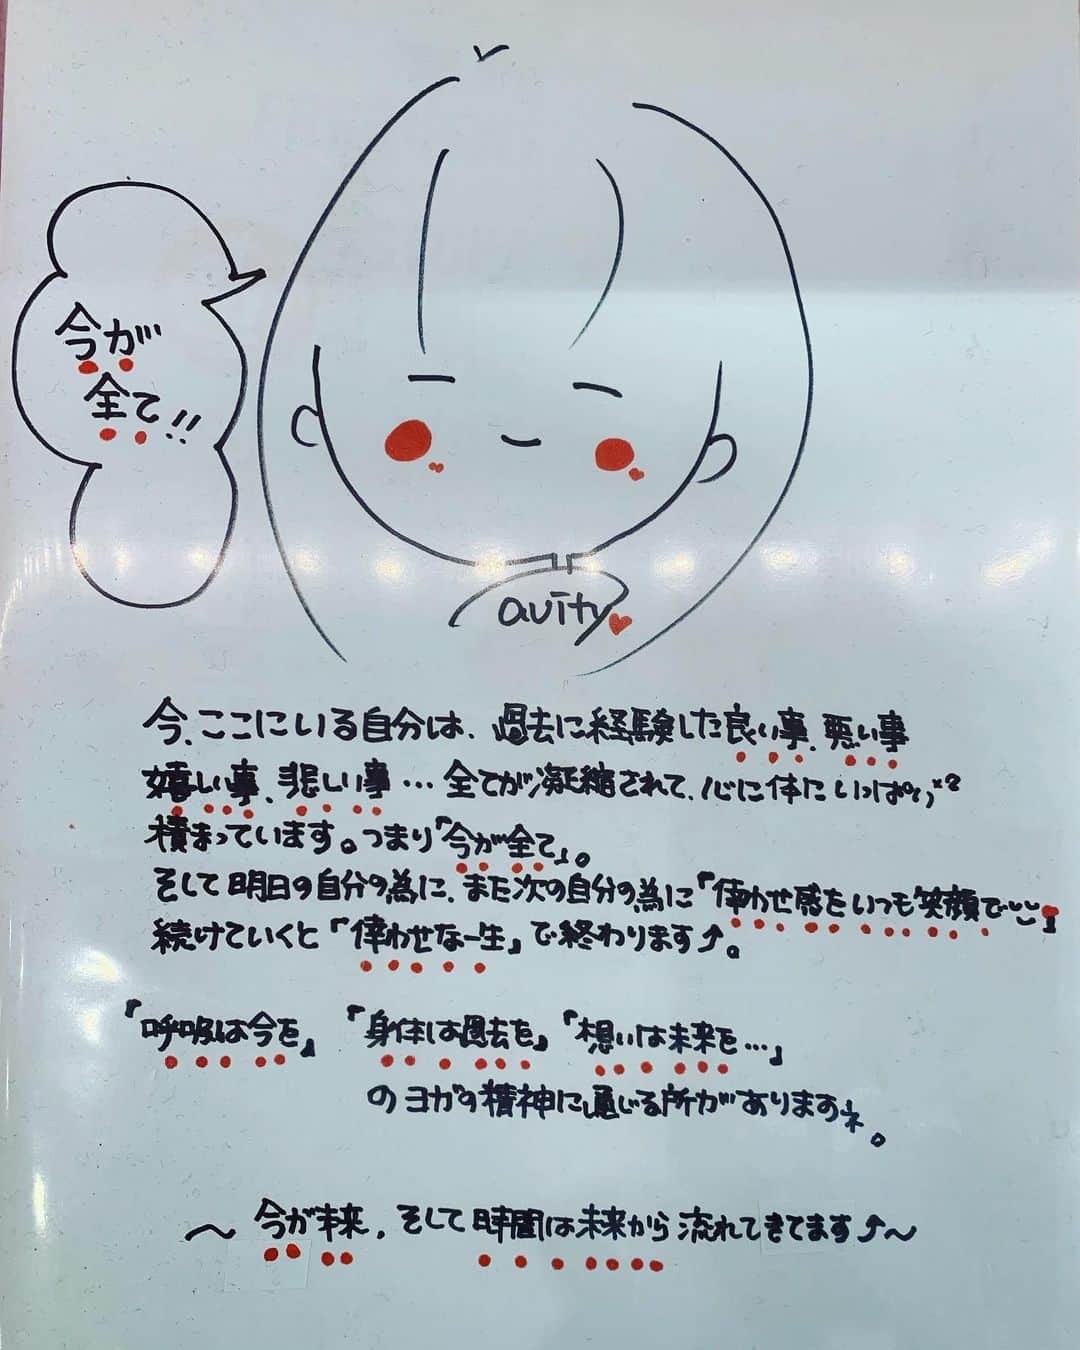 今が
全て!!
avity
今、ここにいる自分は、過去に経験した良い事、悪い事
嬉しい事、悲しい事…全てが凝縮されて、心に体にいっぱい
積まっています。つまり「今が全て」。
そして明日の自分の為に、また次の自分の為に「倖わせ感をいつも笑顔で」
続けていくと「倖わせな一生」で終わります⤴。
『呼吸は今を』『身体は過去を』『想いは未来を…』
のヨガの精神に通じる所がありますネ。
〜今が未来、そして時間は未来から流れてきてます⤴〜